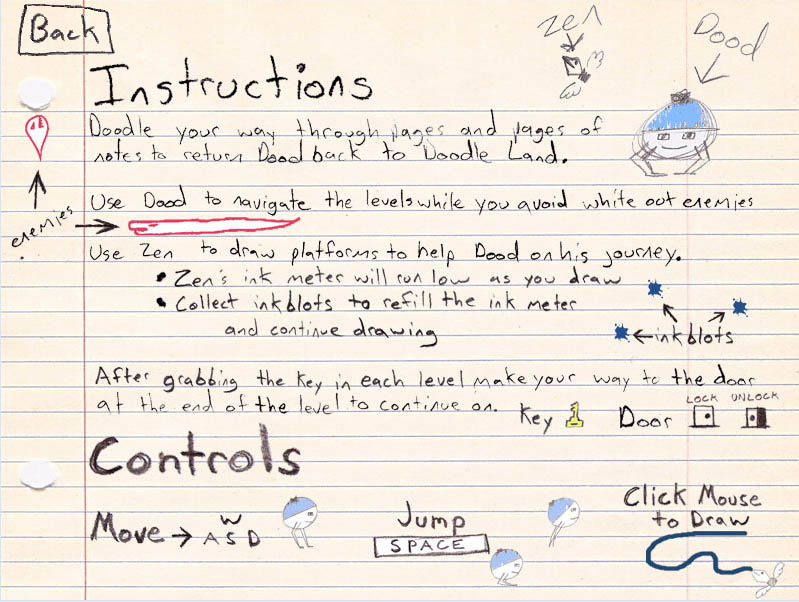 Back
Zen
Dood
Instructions
Doodle your way through pages and pages of
notes to return Dood back to Doodle Land.
Use Dood to navigate the levels while you avoid white out enemies
enemies
Use Zen to draw platforms to help Dood on his journey.
• Zen's ink meter will run low as you draw
• Collect inkblots to refill the ink meter
and continue drawing
inkblots
After grabbing the Key in each level make your way to the door
at the end of the level to continue on.
Key
Door
LOCK
UNLOCK
Controls
Move → W
A S D
Jump
SPACE
Click Mouse
to Draw